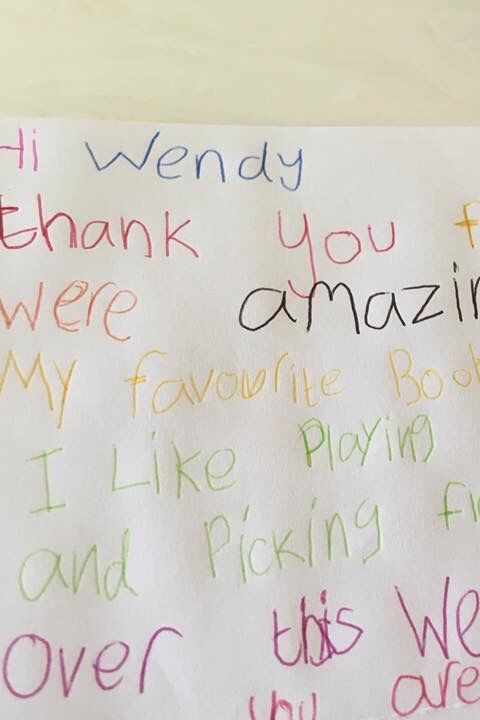 Hi Wendy
thank you f
were amazin
My favourite Book
I Like Playing
and Picking
over this We
you are